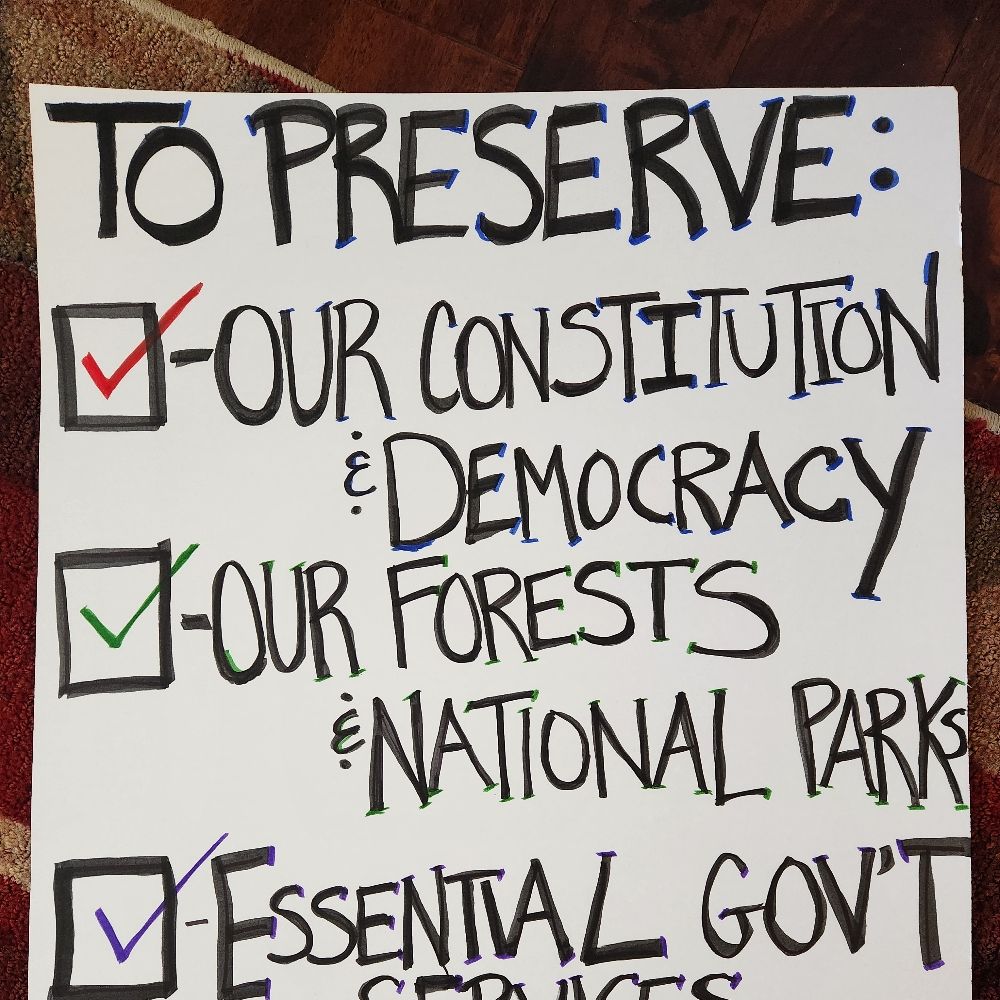 TO PRESERVE:
-OUR CONSTITUTION
& DEMOCRACY
-OUR FORESTS
& NATIONAL PARKS
-ESSENTIAL GOV'T
SERVICES